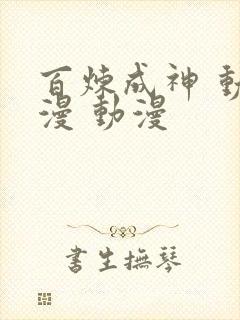 百炼成神 動
漫 動漫
書生撫琴